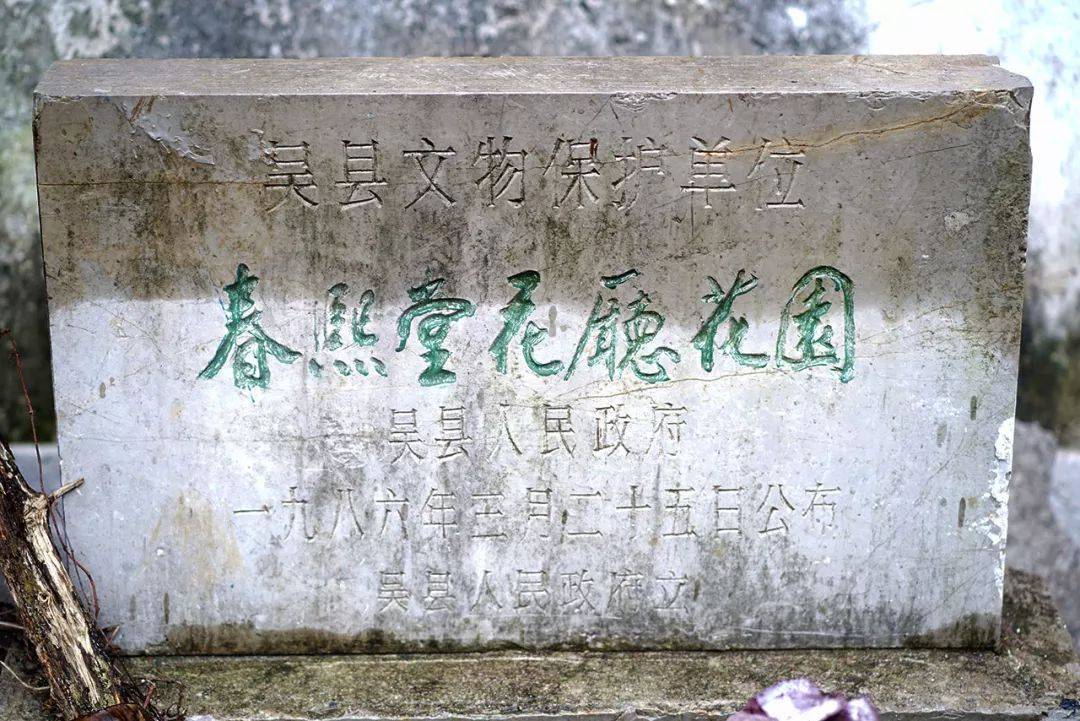 吴县文物保护单位
春熙堂花廳花園
吴县人民政府
一九八六年三月二十五日公布
吴县人民政府立